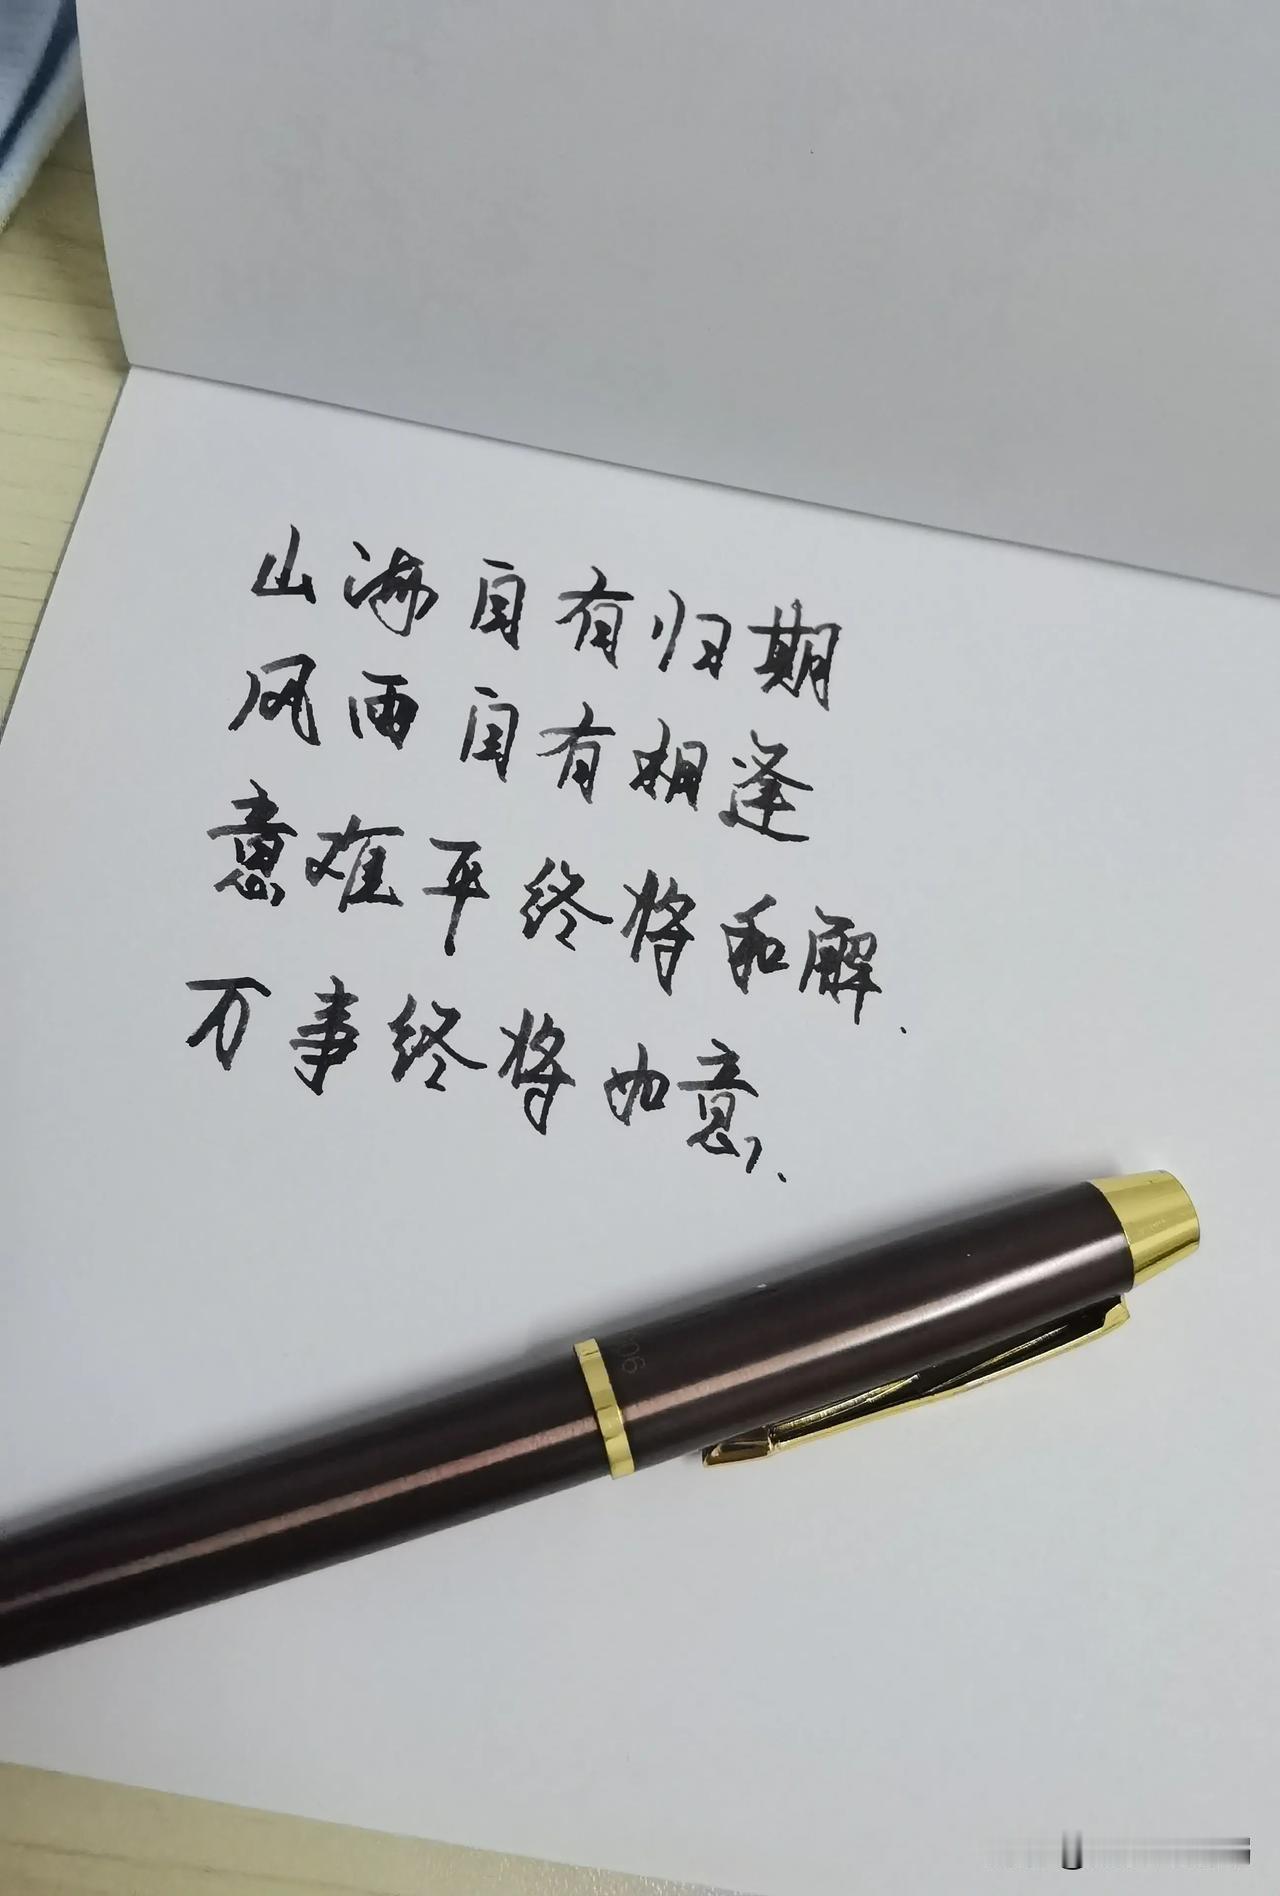 山海自有归期
风雨自有相逢
意难平终将和解.
万事终将如意.